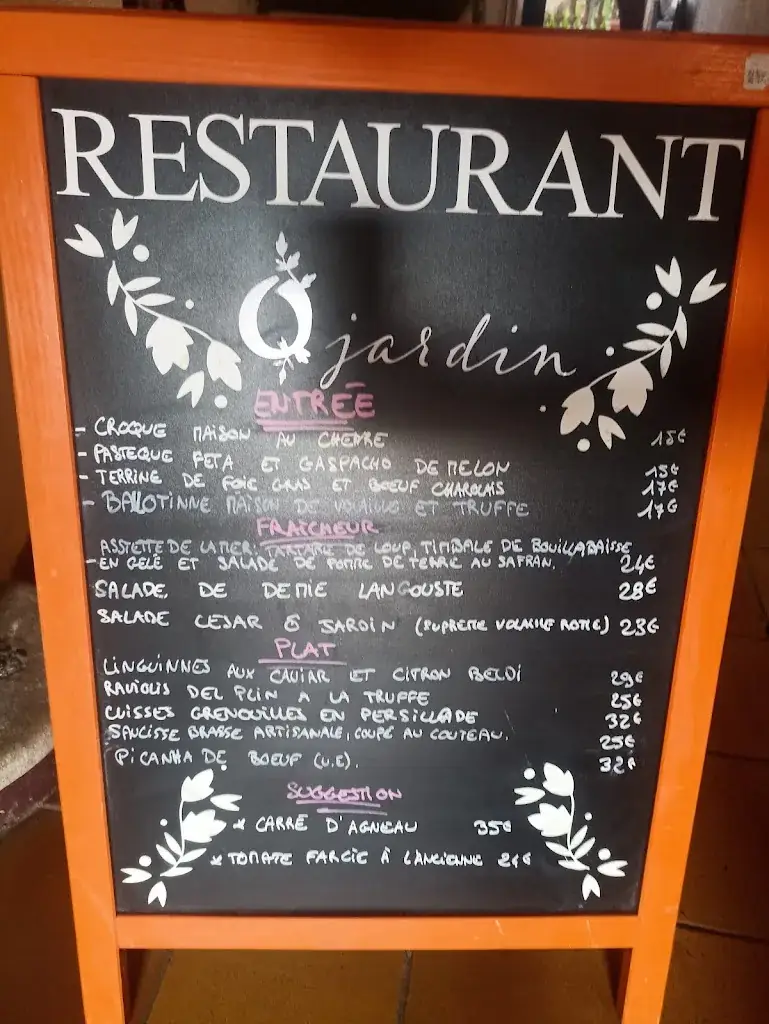 RESTAURANT
Ô jardin
ENTRÉE
- CROQUE MAISON AU CHEVRE 15€
- PASTEQUE FETA ET GASPACHO DE MELON 15€
- TERRINE DE FOIE GRAS ET BOEUF CHAROLAIS 17€
- BALLOTINNE MAISON DE VOLAILLE ET TRUFFE 17€
FRAICHEUR
ASSIETTE DE LA MER: TARTARE DE LOUP, TIMBALE DE BOUILLABAISSE
- EN GELÉ ET SALADE DE POMME DE TERRE AU SAFRAN. 24€
SALADE DE DEMIE LANGOUSTE 28€
SALADE CESAR Ô JARDIN (SUPREME VOLAILLE ROTIE) 23€
PLAT
LINGUINNES AUX CAVIAR ET CITRON BELDI 29€
RAVIOLIS DEL PLIN A LA TRUFFE 25€
CUISSES GRENOUILLES EN PERSILLADE 32€
SAUCISSE BRASSE ARTISANALE, COUPÉ AU COUTEAU. 25€
PICANHA DE BOEUF (U.E). 32€
SUGGESTION
* CARRÉ D'AGNEAU 35€
* TOMATE FARCIE À L'ANCIENNE 24€